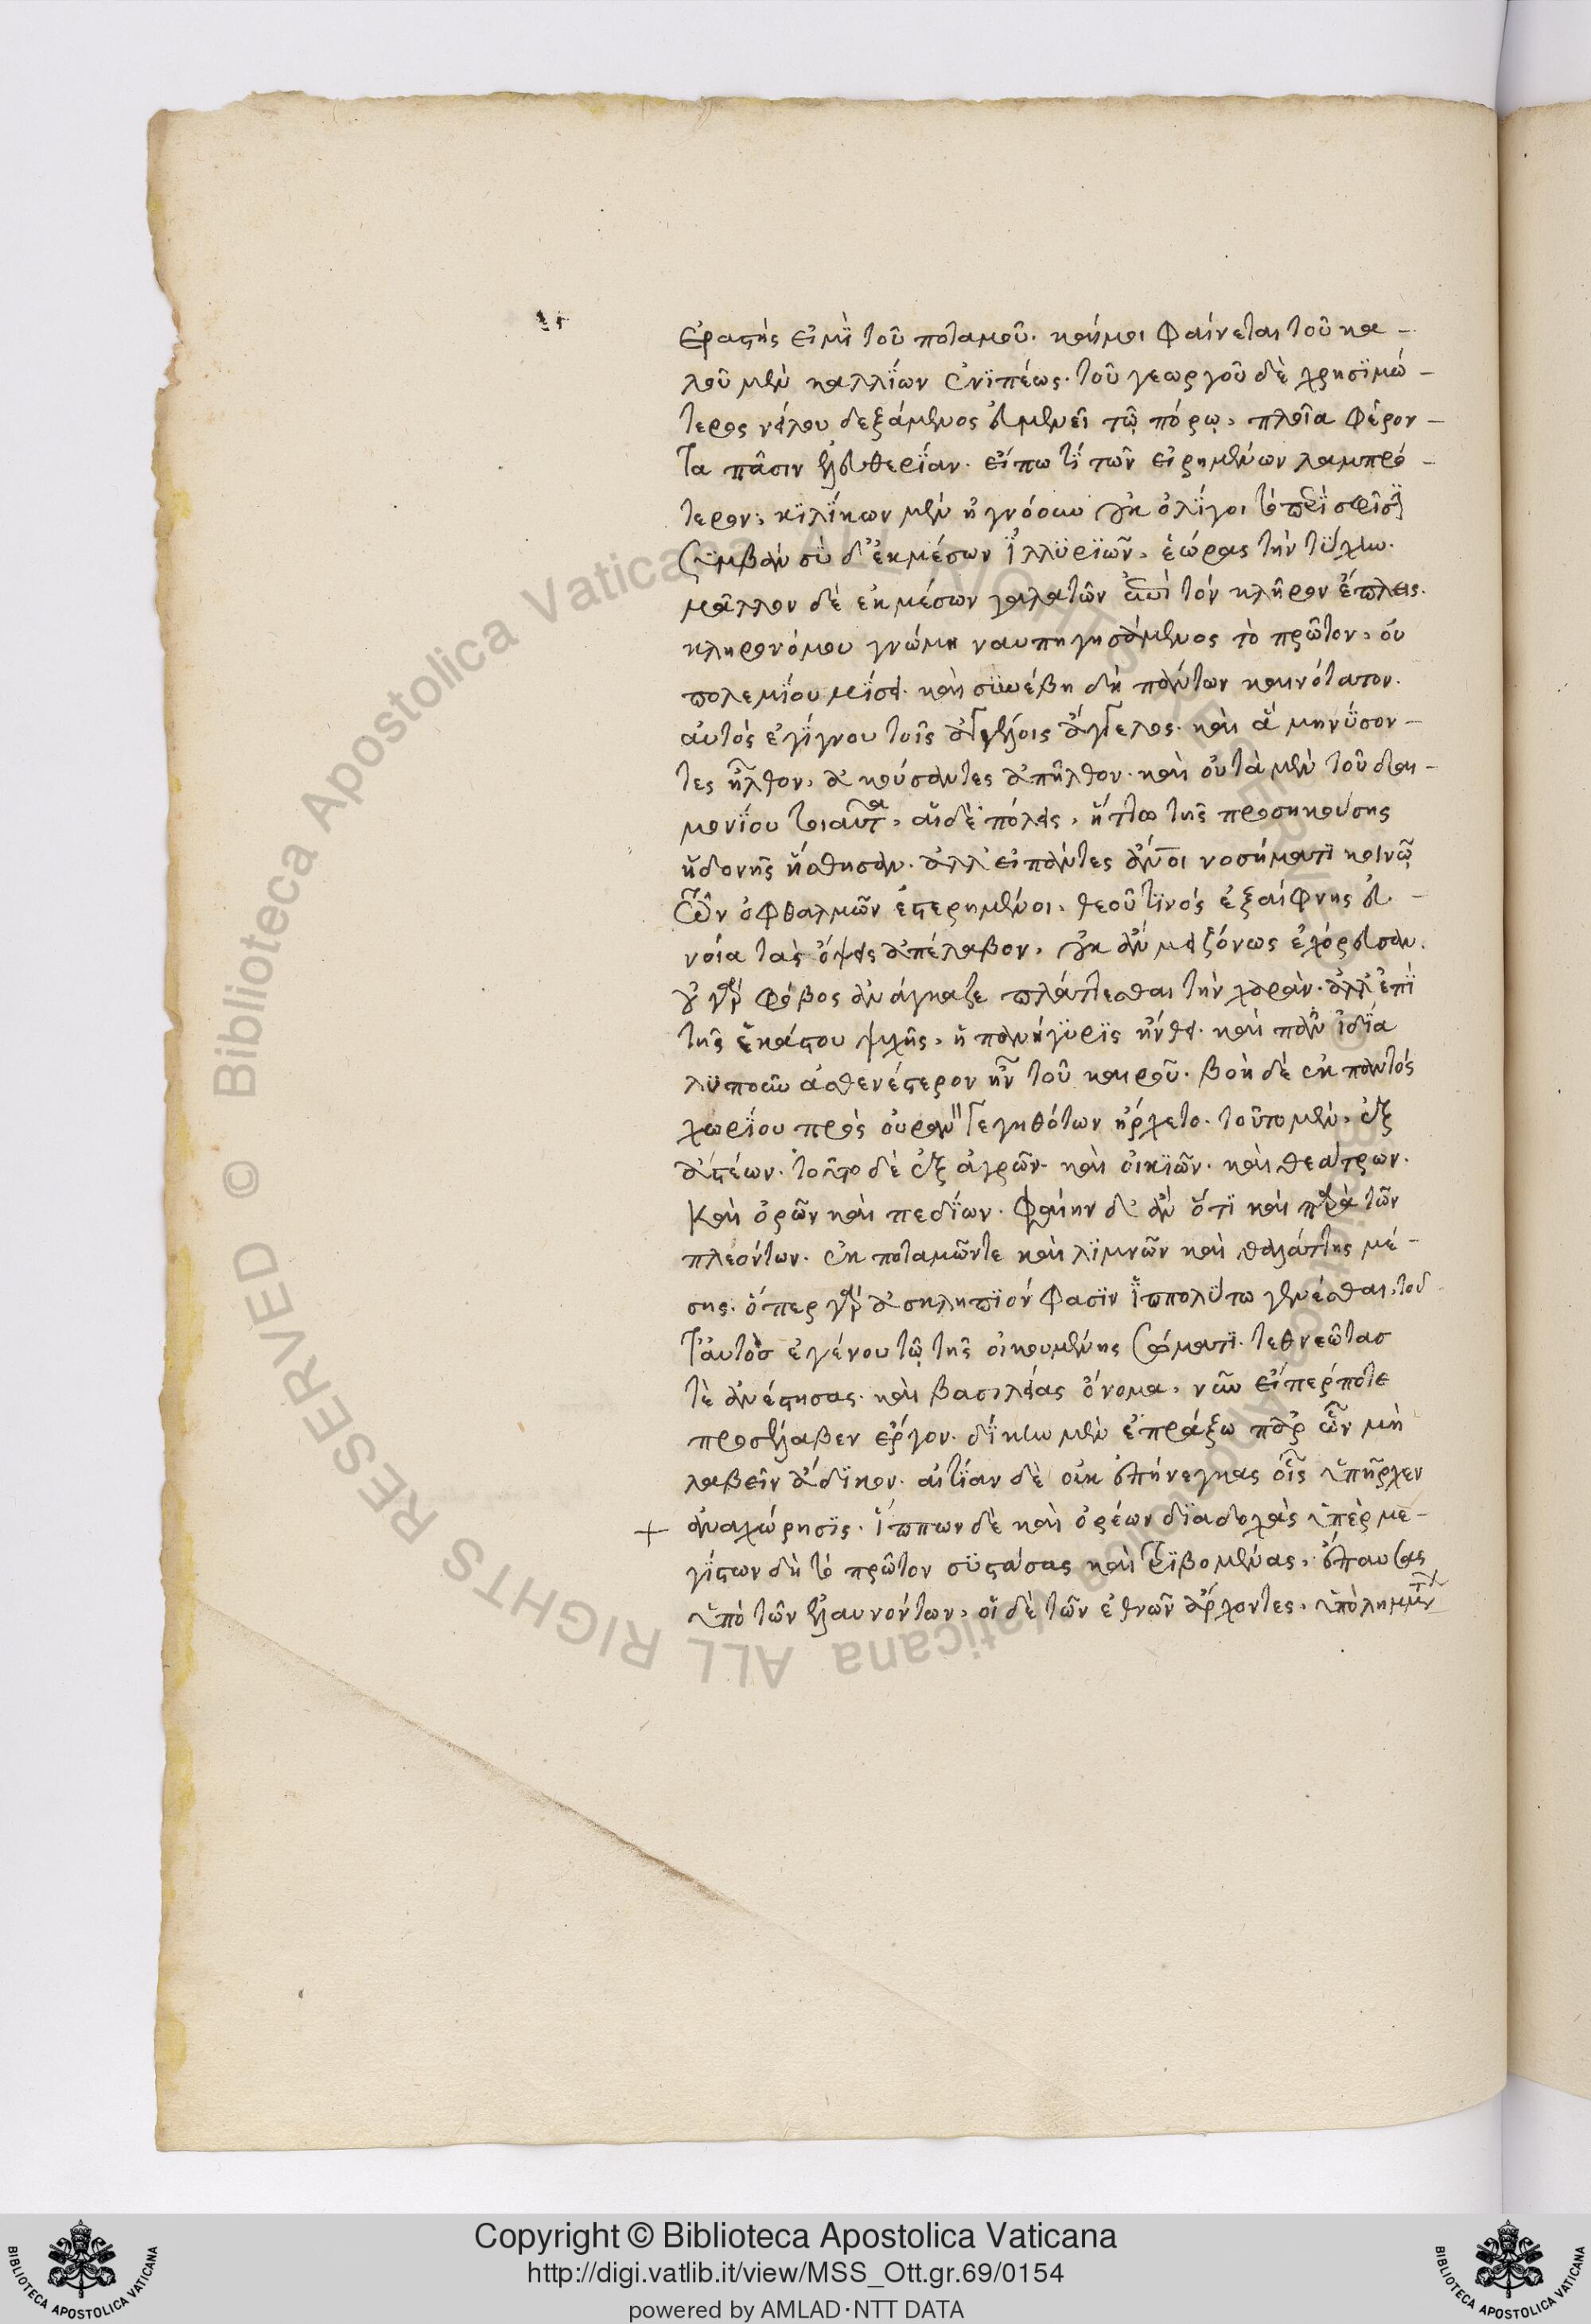 ἐραστής εἰμὶ τοῦ ποταμοῦ. καί μοι φαίνεται τοῦ κα-
λοῦ μὲν καλλΐων ἐνϊπέως. τοῦ γεωργοῦ δὲ χρησϊμώ-
τερος νείλου δεξάμενος εὐμενεῖ τῷ πόρῳ, πλοῖα φέρον-
τα πᾶσιν ἐλευθερΐαν. εἴπω τΐ τῶν εἰρημένων λαμπρό-
τερον, κϊλΐκων μὲν ἠγνόουν οὐκ ὀλΐγοι τὸ περὶ
συμβάν σὺ δ' ἐκ μέσων ἰλλϋρϊῶν, ἑώρας τὴν τύχην.
μᾶλλον δὲ ἐκ μέσων γαλατῶν ἐπὶ τὸν κλῆρον ἔπλεις.
κληρονόμου γνώμη ναυπηγησάμενος τὸ πρῶτον, οὐ
πολεμΐου μΐσει. καὶ συνέβη δὴ πάντων καινότατον.
αὐτὸς ἐγΐγνου τοῖς ἀγγέλοις ἄγγελος. καὶ ἃ μηνΰσον-
τες ἦλθον, ἀκούσαντες ἀπῆλθον. καὶ οὐ τὰ μὲν τοῦ δαι-
μονΐου τοιαῦτα, αἱ δὲ πόλεις, ἥττω τῆς προσηκούσης
ἡδονῆς ἥσθησαν. ἀλλ' εἰ πάντες ἄνθρωποι νοσήματϊ κοινῷ
τῶν ὀφθαλμῶν ἐστερημένοι, θεοῦ τϊνὸς ἐξαίφνης εὐ-
νοία τὰς ὄψεις ἀπέλαβον, οὐκ ἂν μειζόνως ἐχόρευσαν.
οὐ γὰρ φόβος ἀνάγκαζε πλάττεσθαι τὴν χαρὰν. ἀλλ' ἐπὶ
τῆς ἑκάστου ψυχῆς, ἡ πανήγϋρϊς ἤνθει. καὶ πᾶν ἰδΐα
λϋποῦν ἀσθενέστερον ἦν τοῦ καιροῦ. βοὴ δὲ ἐκ παντὸς
χωρΐου πρὸς οὐρανὸν γεγηθότων ἤρχετο. τοῦτο μὲν, ἐξ
ἄστεων. τοῦτο δὲ ἐξ ἀγρῶν. καὶ οἰκϊῶν. καὶ θεάτρων.
καὶ ὀρῶν καὶ πεδΐων. φαίην δ' ἂν ὅτϊ καὶ παρὰ τῶν
πλεόντων. ἐκ ποταμῶν τε καὶ λϊμνῶν καὶ θαλάττης μέ-
σης. ὅπερ γὰρ ἀσκληπϊόν φασϊν ἱππολΰτω γενέσθαι, τοῦ
τ' αὐτὸσ ἐγένου τῷ τῆς οἰκουμένης σώματϊ. τεθνεῶτασ
τὲ ἀνέστησας. καὶ βασιλείας ὄνομα, νῦν εἴπερ ποτε
προσέλαβεν ἔργον. δΐκην μὲν ἐπράξω παρ' ὧν μὴ
λαβεῖν ἄδϊκον. αἰτΐαν δὲ οὐκ ἐπήνεγκας οἷς ὑπῆρχεν
ἀναχώρησϊς. ἵππων δὲ καὶ ὀρέων δϊαδοχὰς ὑπὲρ με-
γΐστων δὴ τὸ πρῶτον σϋστάσας καὶ τρϊβομένας, ἔπαυσας
ὑπὸ τῶν ἐλαυνόντων, οἱ δὲ τῶν ἐθνῶν ἄρχοντες,
Copyright © Biblioteca Apostolica Vaticana
http://digi.vatlib.it/view/MSS_Ott.gr.69/0154
powered by AMLAD·NTT DATA
BIBLIOTECA APOSTOLICA VATICANA
BIBLIOTECA APOSTOLICA VATICANA
© Biblioteca Apostolica Vaticana ALL RIGHTS RESERVED
© Biblioteca Apostolica Vaticana ALL RIGHTS RESERVED